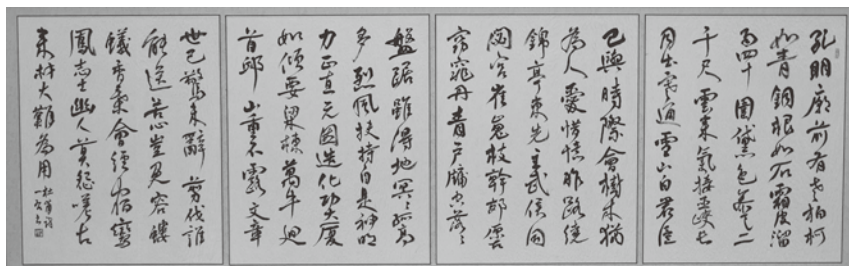 孔明廟前有老柏柯
如青銅根如石霜皮溜
雨四十圍黛色參天二
千尺雲來氣接巫峽長
月出寒通雪山白君臣
已與時際會樹木猶
為人愛惜憶昨路繞
錦亭東先主武侯同
閟宮崔嵬枝幹郊原古
窈窕丹青戶牖空落々
盤踞雖得地冥々孤高
多烈風扶持自是神明
力正直元因造化功大廈
如傾要梁棟萬牛迴
首邱山重不露文章
世已驚未辭剪伐誰
能送苦心豈免容螻
蟻香葉曾經宿鸞
鳳志士幽人莫怨嗟古
來材大難為用 杜甫詩